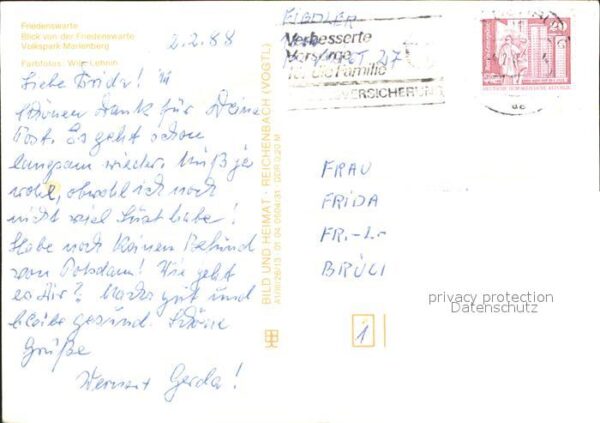 Friedenswarte
Blick von der Friedenswarte
Volkspark Marienberg
Farbfotos:
2.2.88
Liebe Frida!
Schönen Dank für Deine
Post. Es geht schon
langsam wieder. Muß ja
wohl, obwohl ich noch
nicht viel Lust habe!
Habe noch keinen Befund
von Potsdam! Wie geht
es Dir? Mach's gut und
bleibe gesund. Schöne
Grüße
Gerda!
BILD UND HEIMAT · REICHENBACH (VOGTL)
FIEDLER
Verbesserte
Vorsorge
für die Familie
VERSICHERUNG
20
DEUTSCHE DEMOKRATISCHE REPUBLIK
FRAU
FRIDA
FR.-L-
BRÜCI
privacy protection
Datenschutz
1